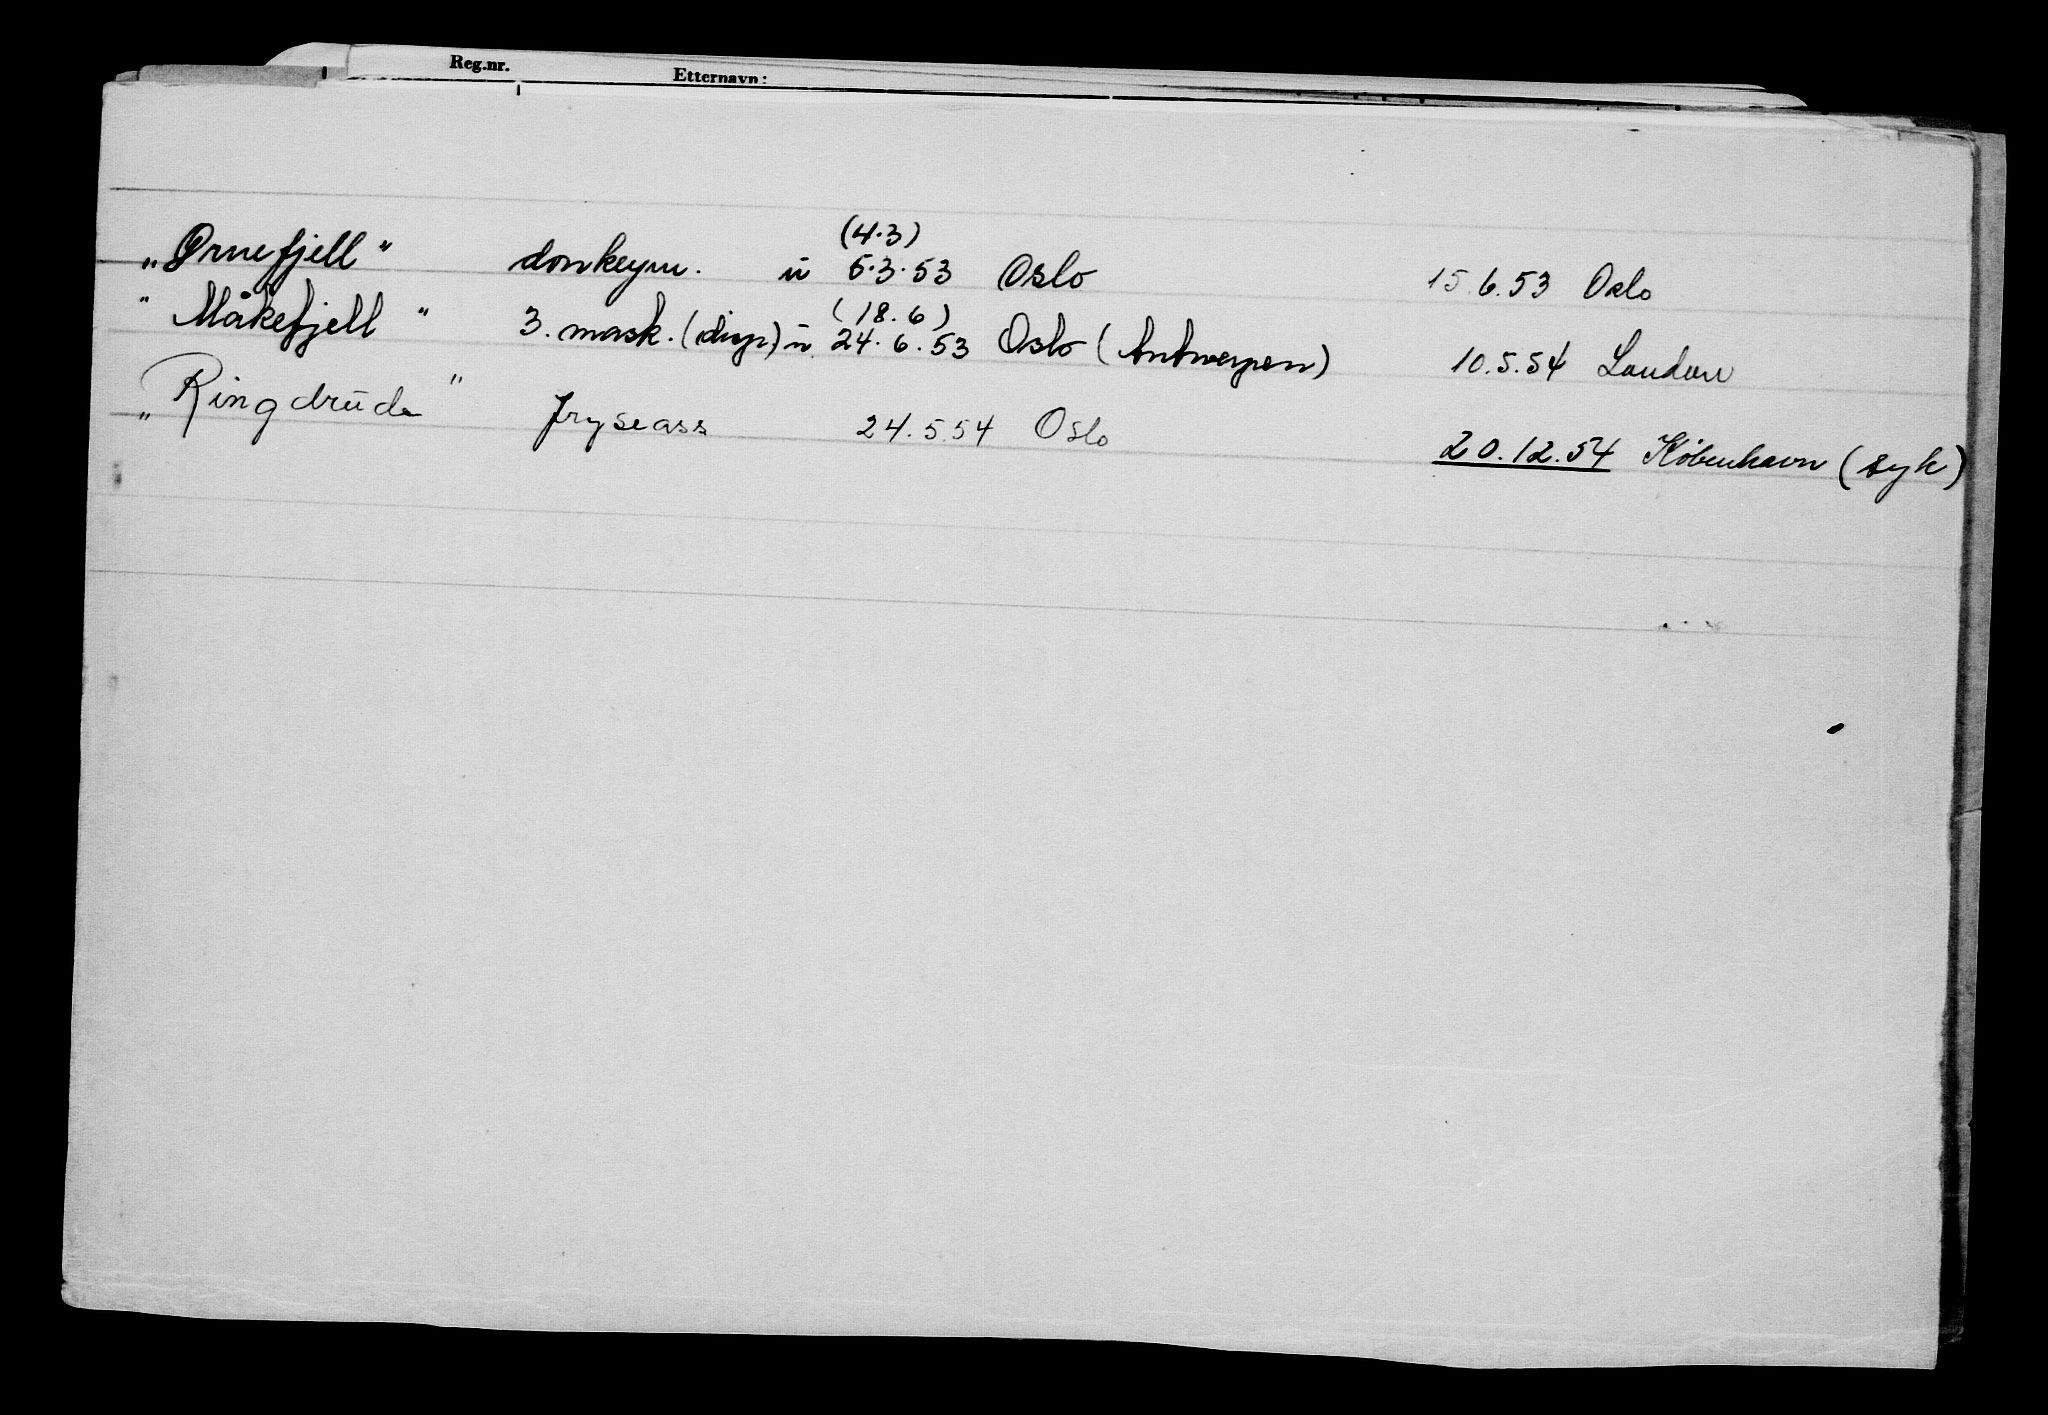 Reg.nr. Etternavn:
(4.3)
„Ørnefjell" donkeym. ü 5.3.53 Oslo 15.6.53 Oslo
(18.6)
" Måkefjell " 3. mask. (disp) ü 24.6.53 Oslo (Antwerpen) 10.5.54 London
„Ringdrude" fryseass 24.5.54 Oslo 20.12.54 København (syk)